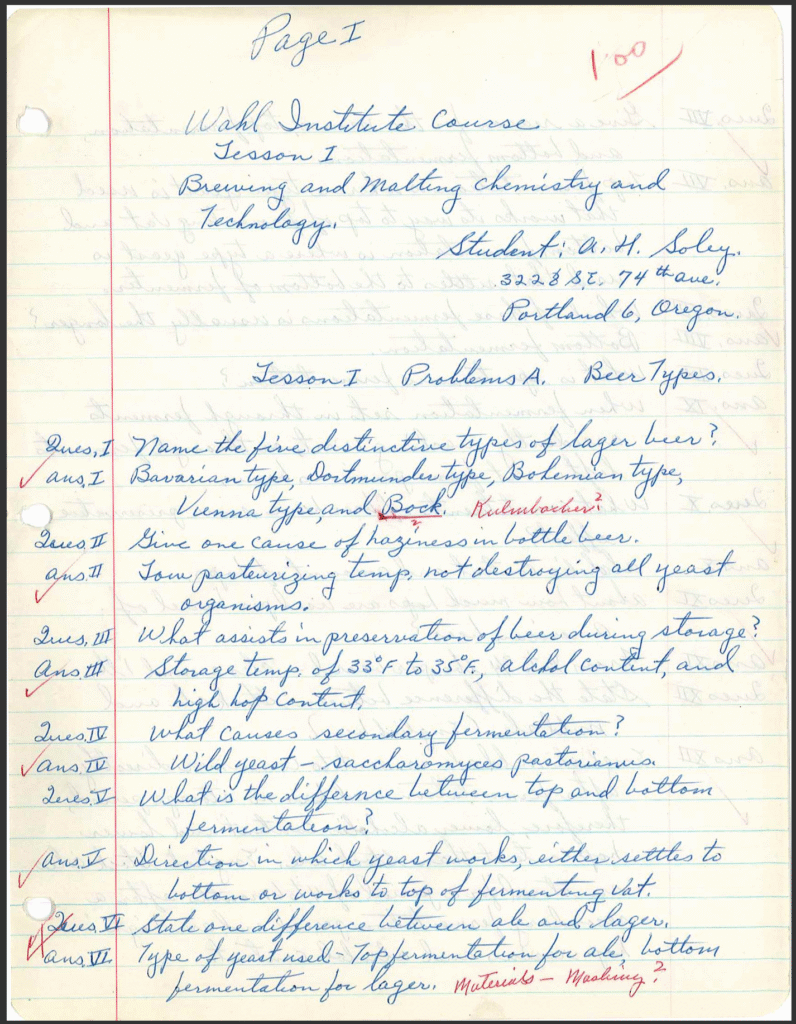 Page I
1.00
Wahl Institute Course
Lesson I
Brewing and Malting Chemistry and
Technology.
Student: A. H. Soley.
3228 S.E. 74th Ave.
Portland 6, Oregon.
Lesson I Problems A. Beer Types.
Ques, I Name the five distinctive types of lager beer?
Ans, I Bavarian type, Dortmunder type, Bohemian type,
Vienna type, and Bock. Kulmbacher?
?
Ques, II Give one cause of haziness in bottle beer.
Ans. II Low pasteurizing temp, not destroying all yeast
organisms.
Ques, III What assists in preservation of beer during storage?
Ans. III Storage temp. of 33°F to 35°F., alchol content, and
high hop content.
Ques, IV What causes secondary fermentation?
Ans. IV Wild yeast - saccharomyces pastorianus.
Ques. V What is the differnce between top and bottom
fermentation?
Ans. V. Direction in which yeast works, either settles to
bottom or works to top of fermenting vat.
Ques VI State one difference between ale and lager.
Ans. VI. Type of yeast used - Top fermentation for ale, bottom
fermentation for lager. Materials - Mashing?